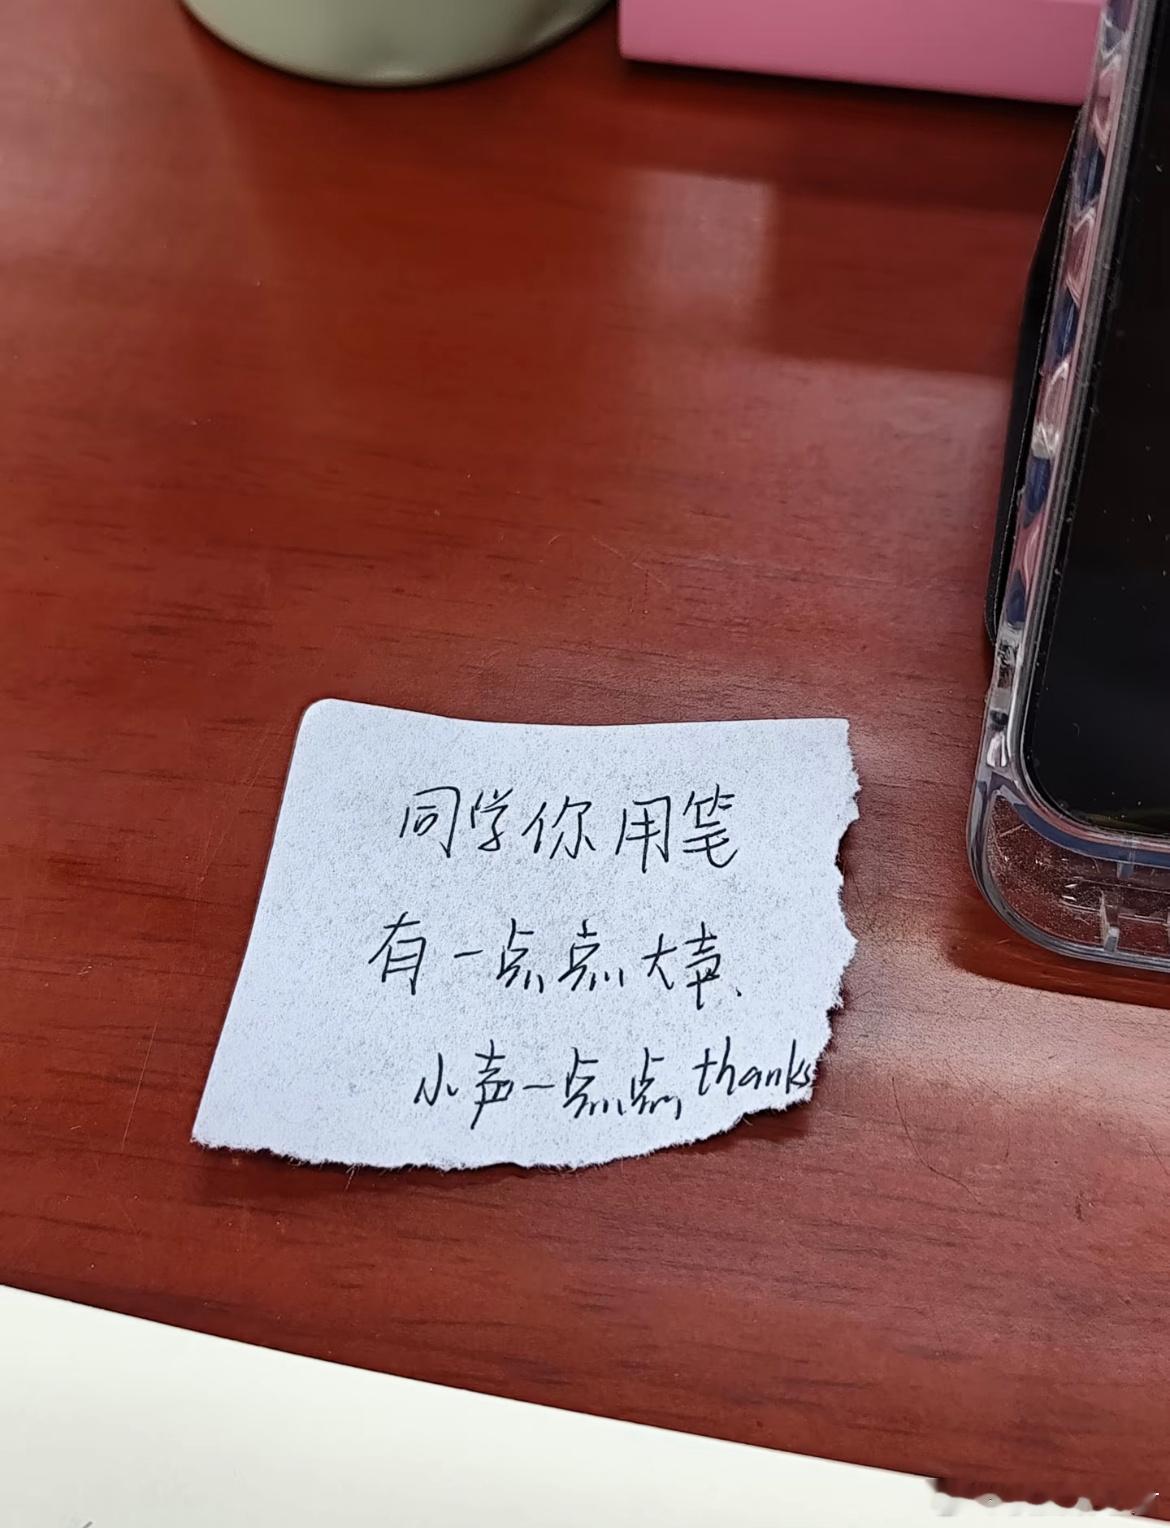 同学你用笔
有一点点大声、
小声一点点thanks